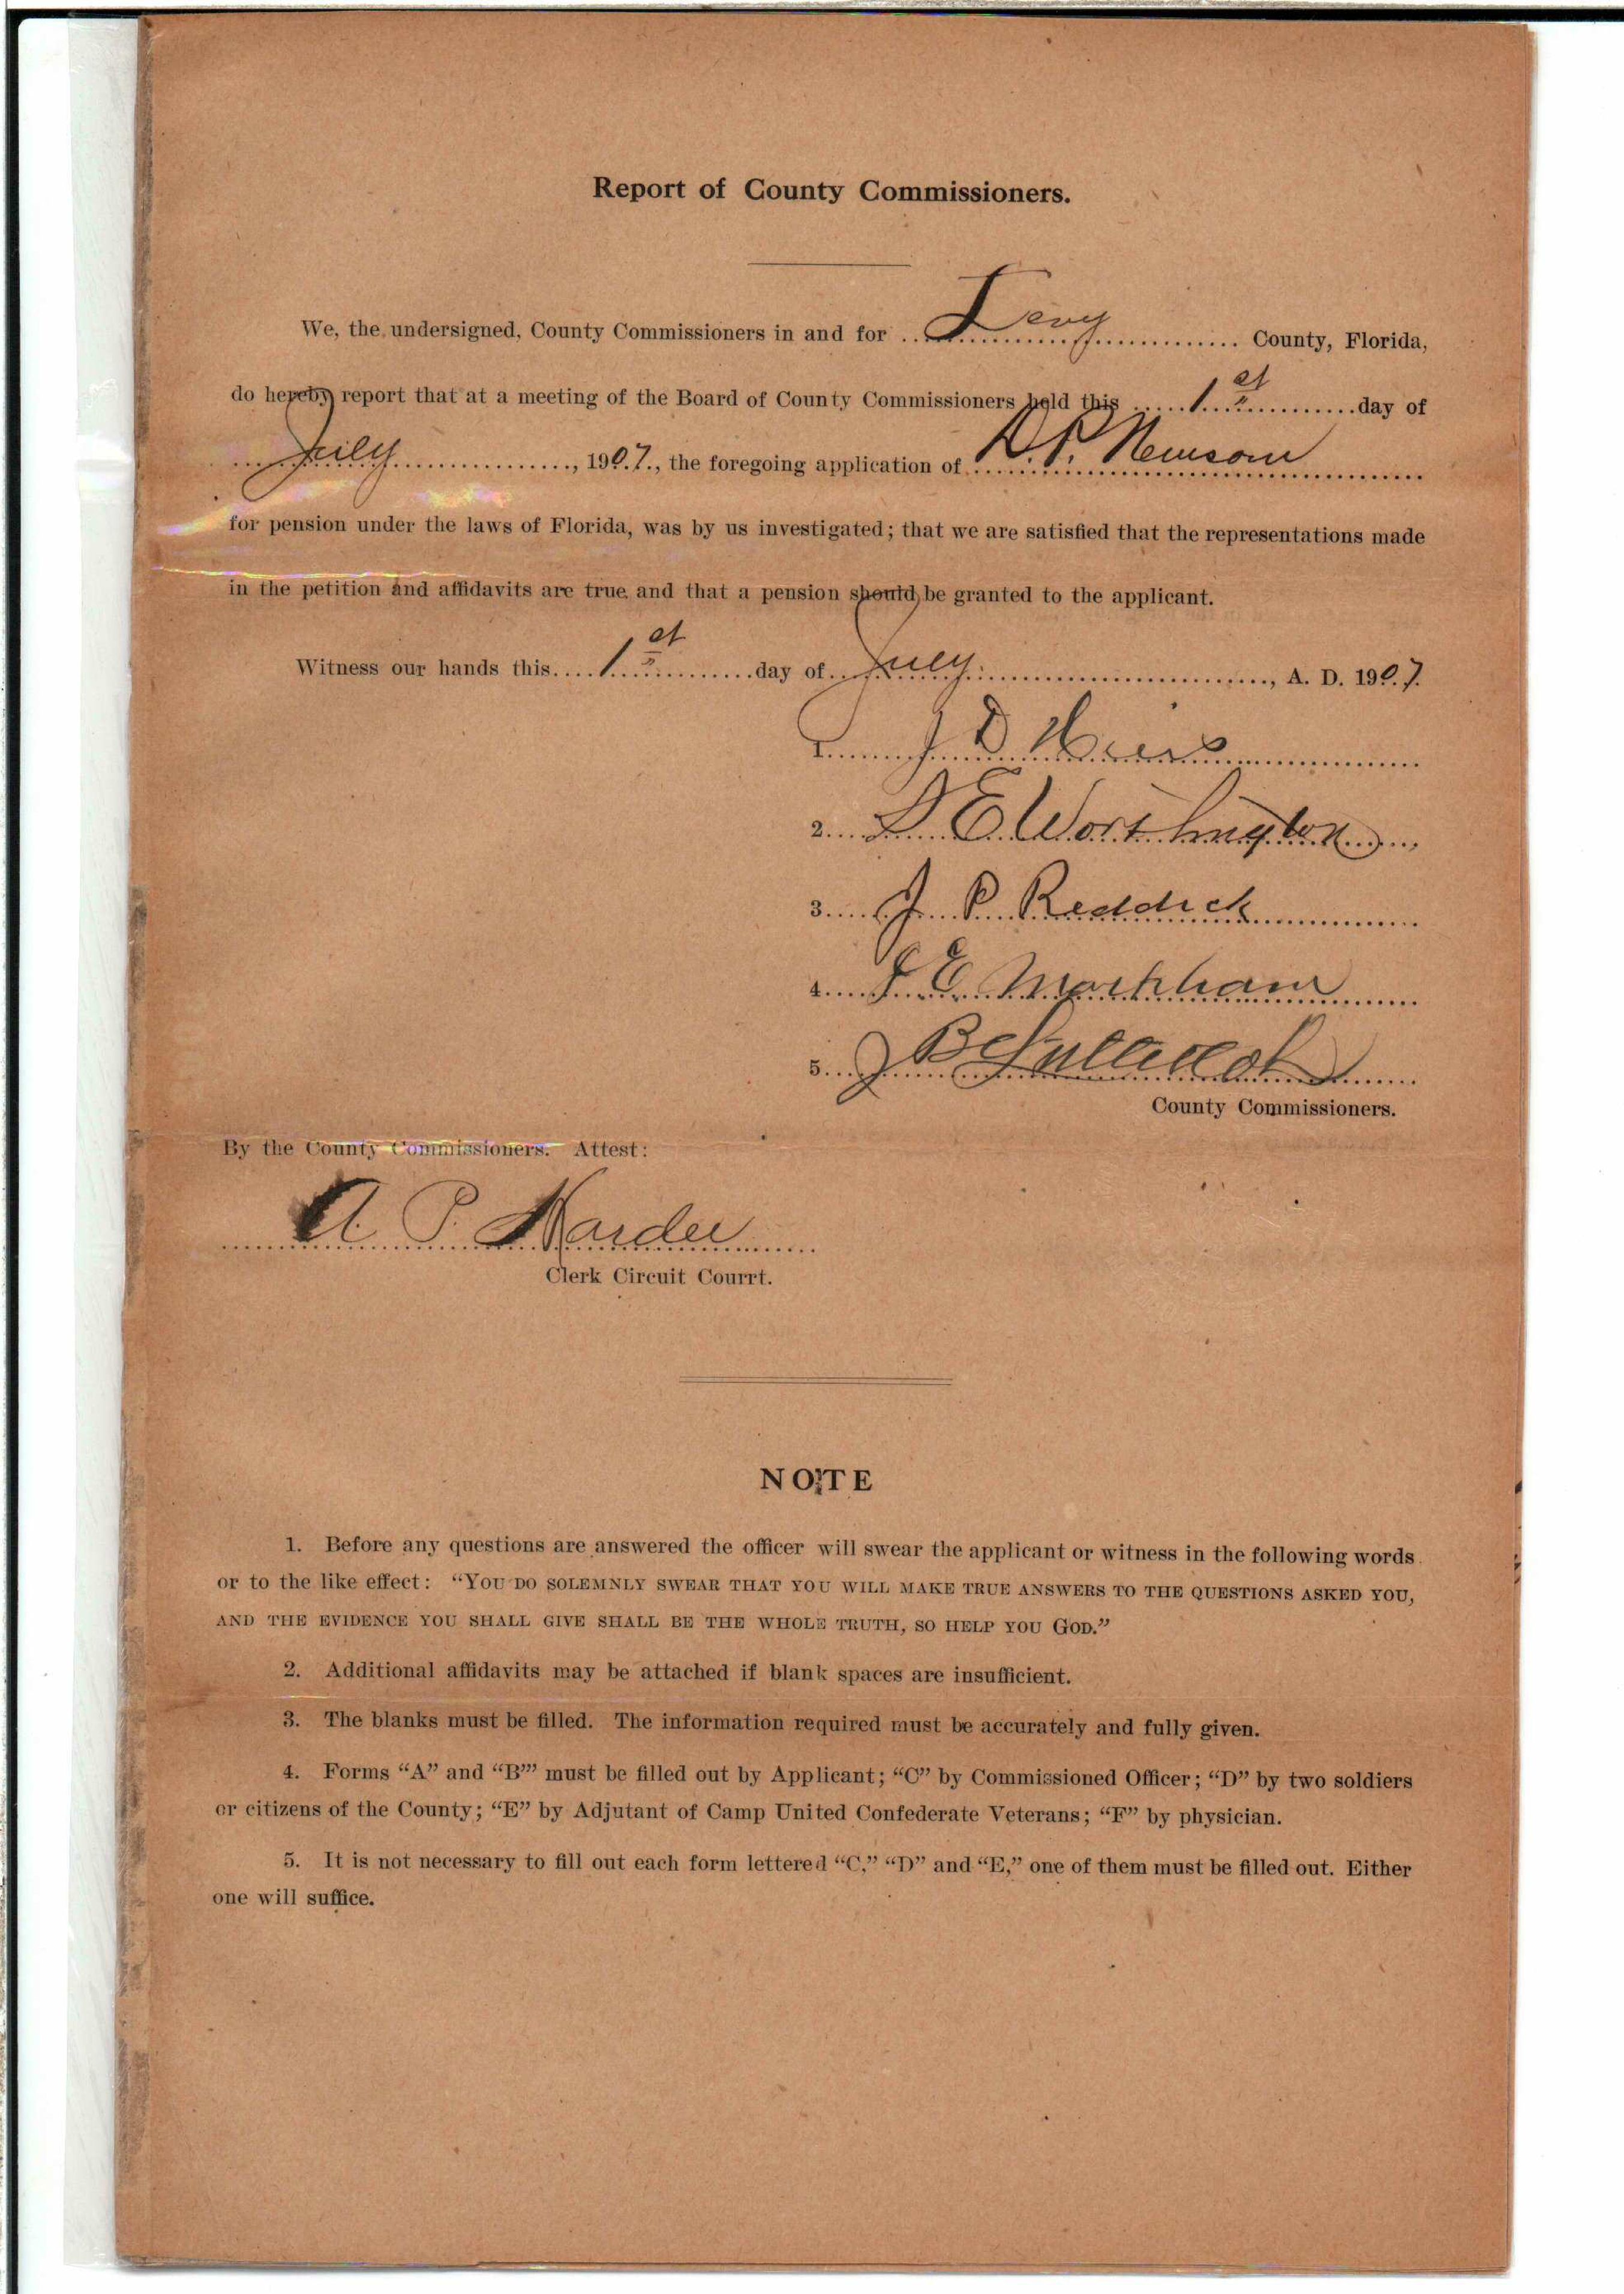 Report of County Commissioners.
We, the undersigned, County Commissioners in and for Levy County, Florida,
do hereby report that at a meeting of the Board of County Commissioners held this 1st day of
July, 1907., the foregoing application of D. P. Newsom
for pension under the laws of Florida, was by us investigated; that we are satisfied that the representations made
in the petition and affidavits are true and that a pension should be granted to the applicant.
Witness our hands this 1st day of July, A. D. 1907.
1. J D
2. E Worthington
3. J. P. Reddick
4. E Markham
5. J B
County Commissioners.
By the County Commissioners. Attest:
A. P. Hardee
Clerk Circuit Courrt.
NOTE
1. Before any questions are answered the officer will swear the applicant or witness in the following words
or to the like effect: “YOU DO SOLEMNLY SWEAR THAT YOU WILL MAKE TRUE ANSWERS TO THE QUESTIONS ASKED YOU,
AND THE EVIDENCE YOU SHALL GIVE SHALL BE THE WHOLE TRUTH, SO HELP YOU GOD.”
2. Additional affidavits may be attached if blank spaces are insufficient.
3. The blanks must be filled. The information required must be accurately and fully given.
4. Forms “A” and “B”’ must be filled out by Applicant; “C” by Commissioned Officer; “D” by two soldiers
or citizens of the County; “E” by Adjutant of Camp United Confederate Veterans; “F” by physician.
5. It is not necessary to fill out each form lettered “C,” “D” and “E,” one of them must be filled out. Either
one will suffice.